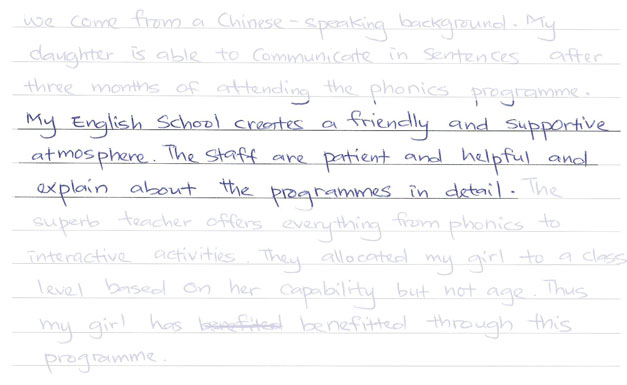 We come from a Chinese-speaking background. My
daughter is able to communicate in sentences after
three months of attending the phonics programme.
My English School creates a friendly and supportive
atmosphere. The staff are patient and helpful and
explain about the programmes in detail. The
superb teacher offers everything from phonics to
interactive activities. They allocated my girl to a class
level based on her capability but not age. Thus
my girl has benefited benefitted through this
programme.